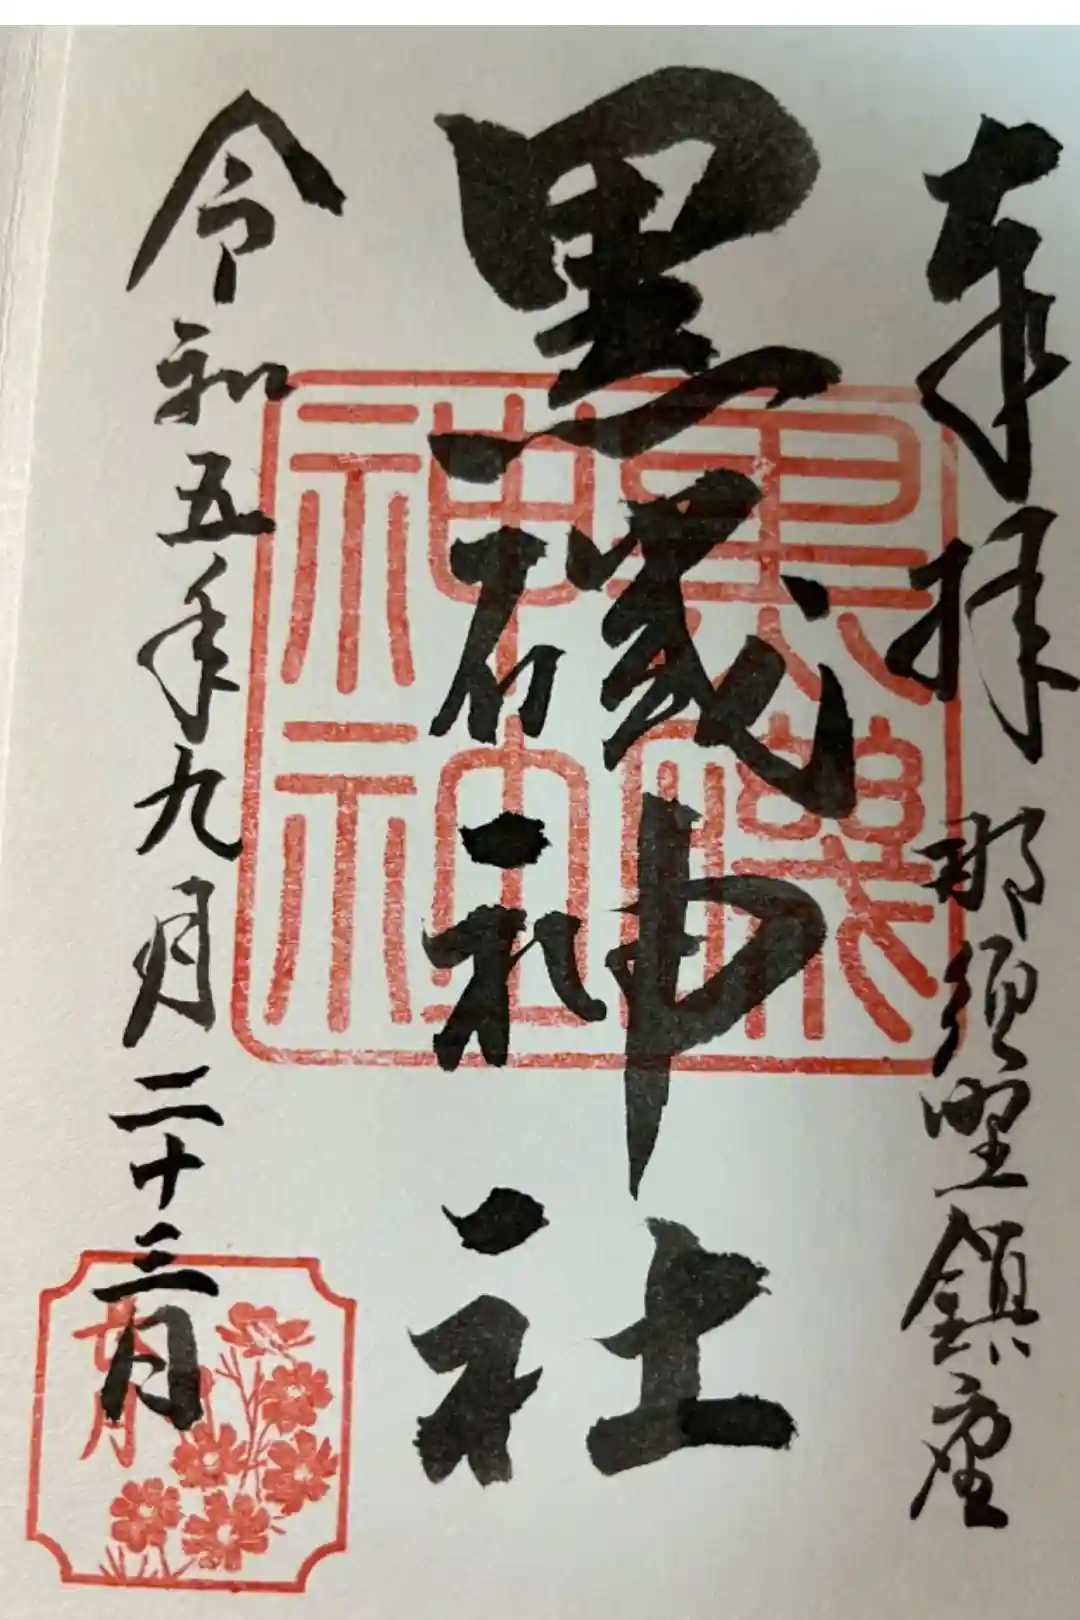 奉拝 那須野鎮座
黒磯神社
令和五年九月二十三日
黒磯
神社